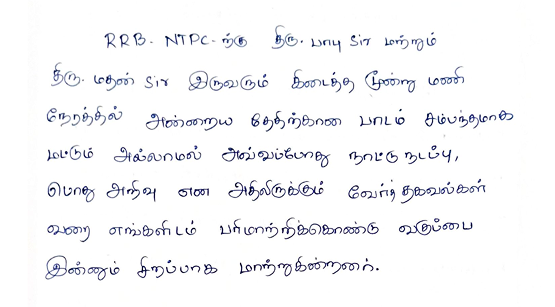 RRB - NTPC - ற்கு திரு. பாபு Sir மற்றும்
திரு. மதன் Sir இருவரும் கிடைத்த மூன்று மணி
நேரத்தில் அன்றைய தேதிற்கான பாடம் சம்பந்தமாக
மட்டும் அல்லாமல் அவ்வப்போது நாட்டு நடப்பு,
பொது அறிவு என அதிலிருக்கும் வேர்த் தகவல்கள்
வரை எங்களிடம் பரிமாற்றிக்கொண்டு வகுப்பை
இன்னும் சிறப்பாக மாற்றுகின்றனர்.